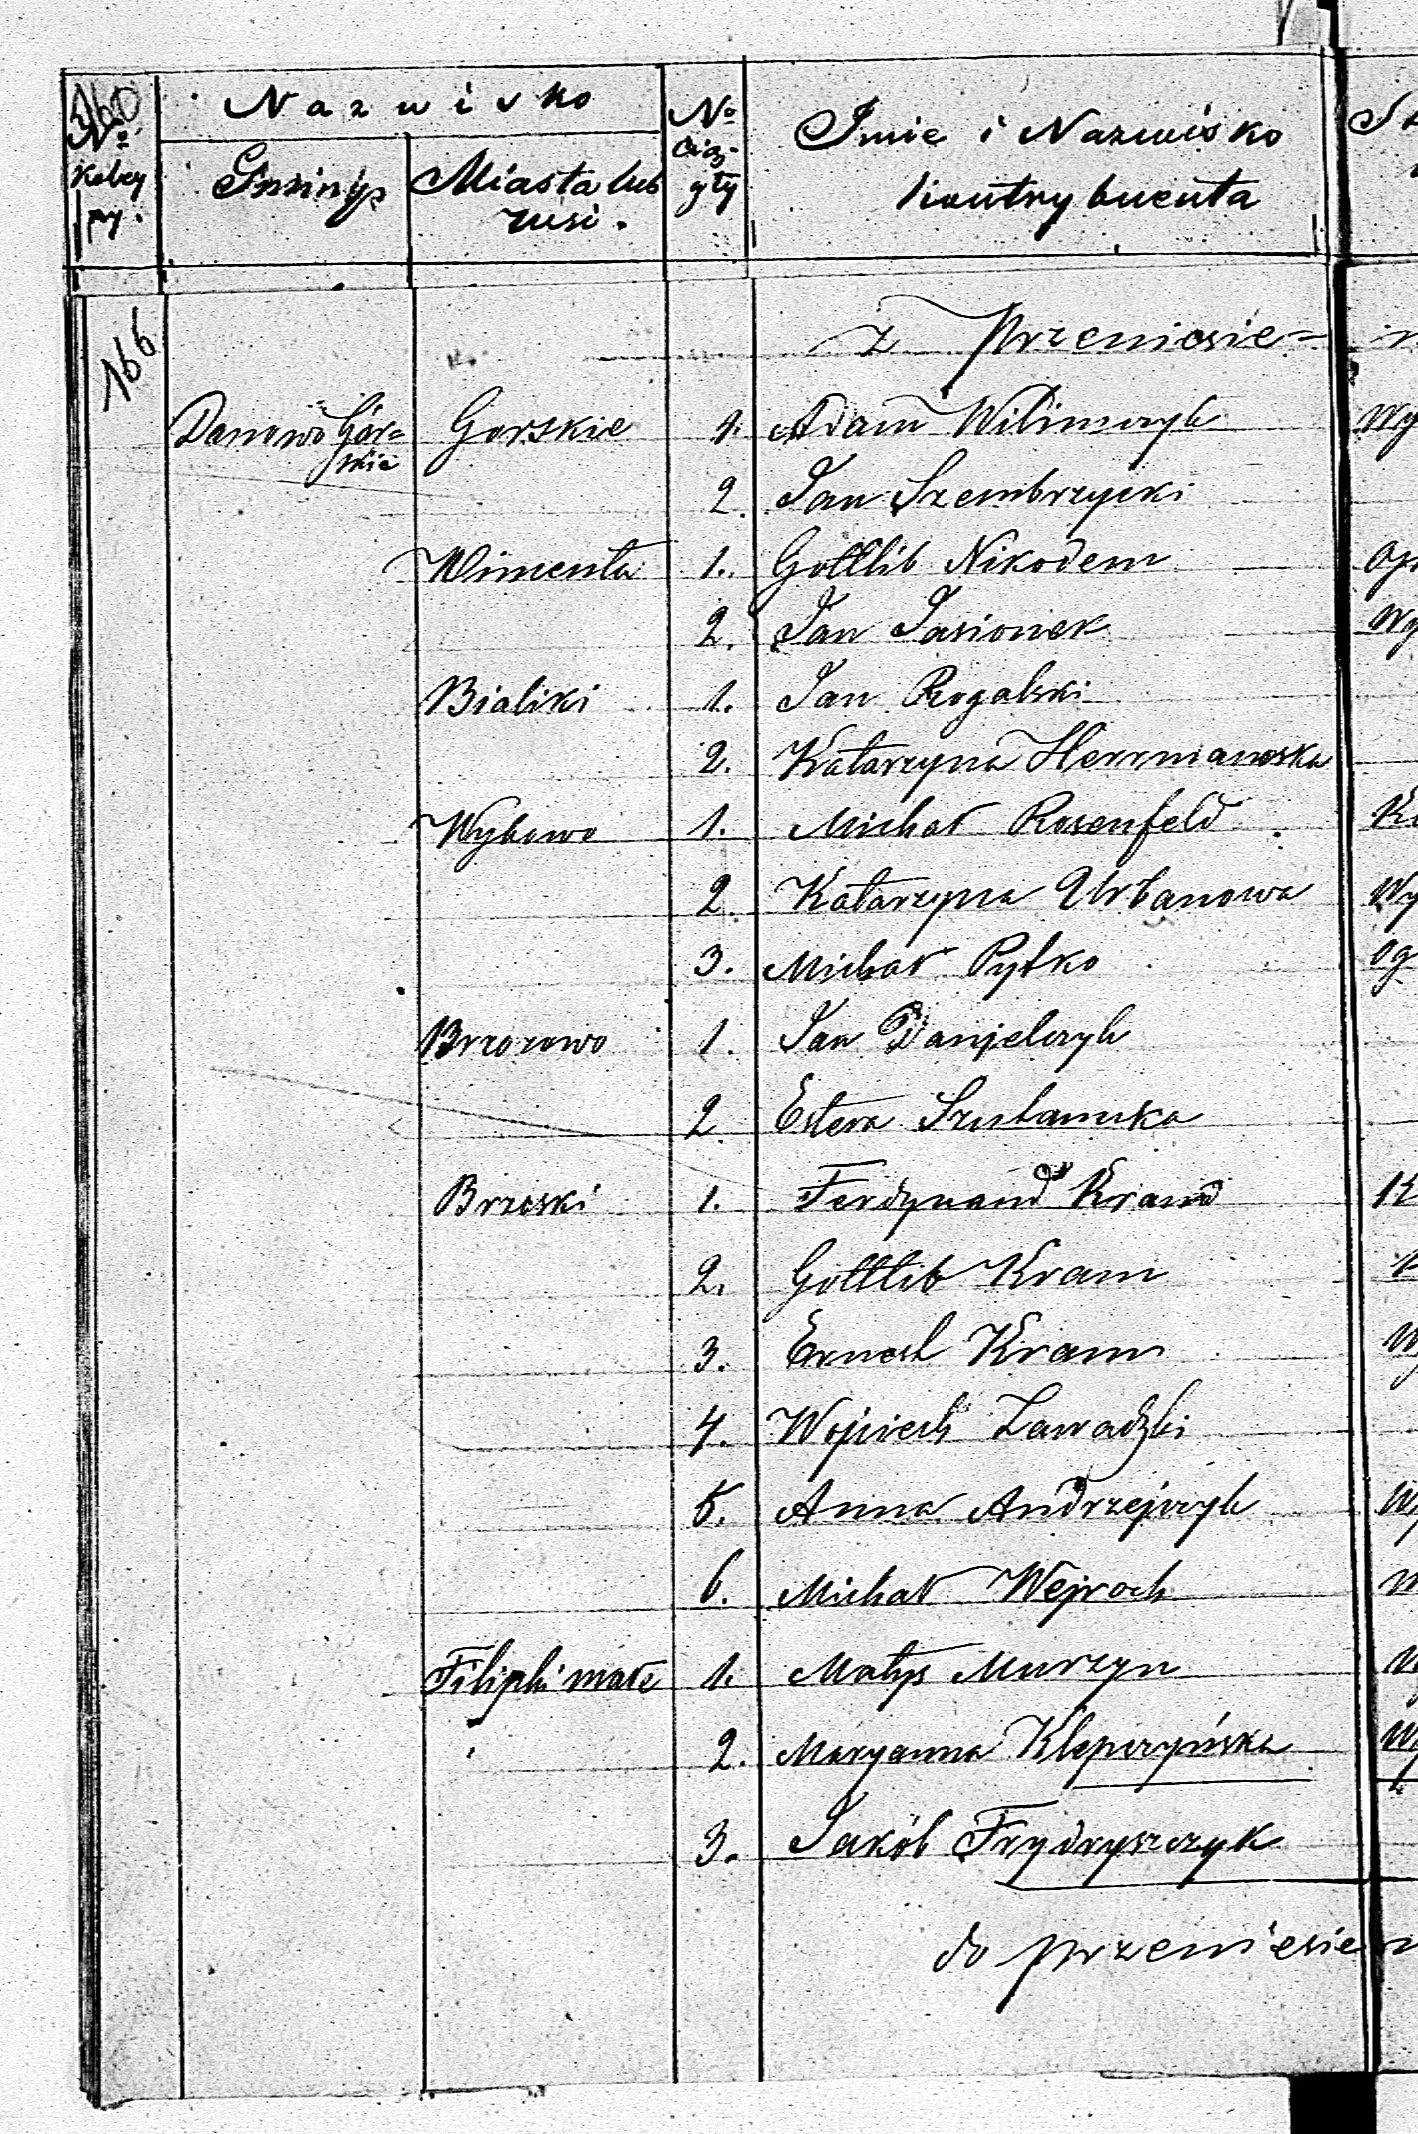 160
Nazwisko
Gminy Miasta lub
wsi.
No
No
Imie i Nazwisko
kontrybuenta
166
z przeniesie-
Danowo Gór= Gorskie 1. Adam Wilimczyk Wy
skie
2. Jan Szembrzycki
Wincenta 1. Gottlib Nikodem
2. Jan Jasionek Wy
Bialiki 1. Jan Rogalski
2. Katarzyna Herrmanoska
Wykowo 1. Michał Rosenfeld
2. Katarzyna Urbanowa Wy
3. Michał Pytko Og
Brzozowo 1. Jan Danjelczyk
2. Estera
Brzoski 1. Ferdynand Kram
2. Gottlib Kram
3. Ernest Kram
4. Wojciech Zawadzki
5. Anna Andrzejczyk
6. Michał Wejroch
Filipki małe 1. Matys Murzyn
2. Maryanna Klepczyńska Wy
3. Jakób Frydryszczyk
do przeniesien